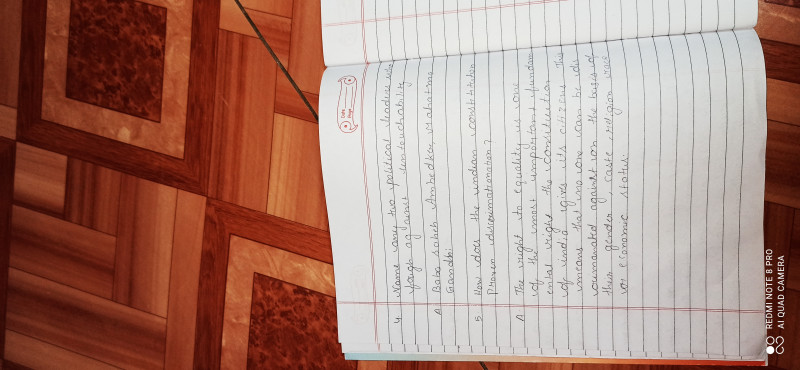 4. Name any two political leaders who
fough against untouchability
A Baba saheb Ambedkar, Mahatma
Gandhi
5 How does the indian constitution
Prozen discrumationation?
A The right to equality is one
of the most important fundam
ental right the constitution
of india gives its citizens. This
means that no one can be dis
against on the basis of
their gender caste religion race
or economic status.
REDMI NOTE 8 PRO
AI QUAD CAMERA